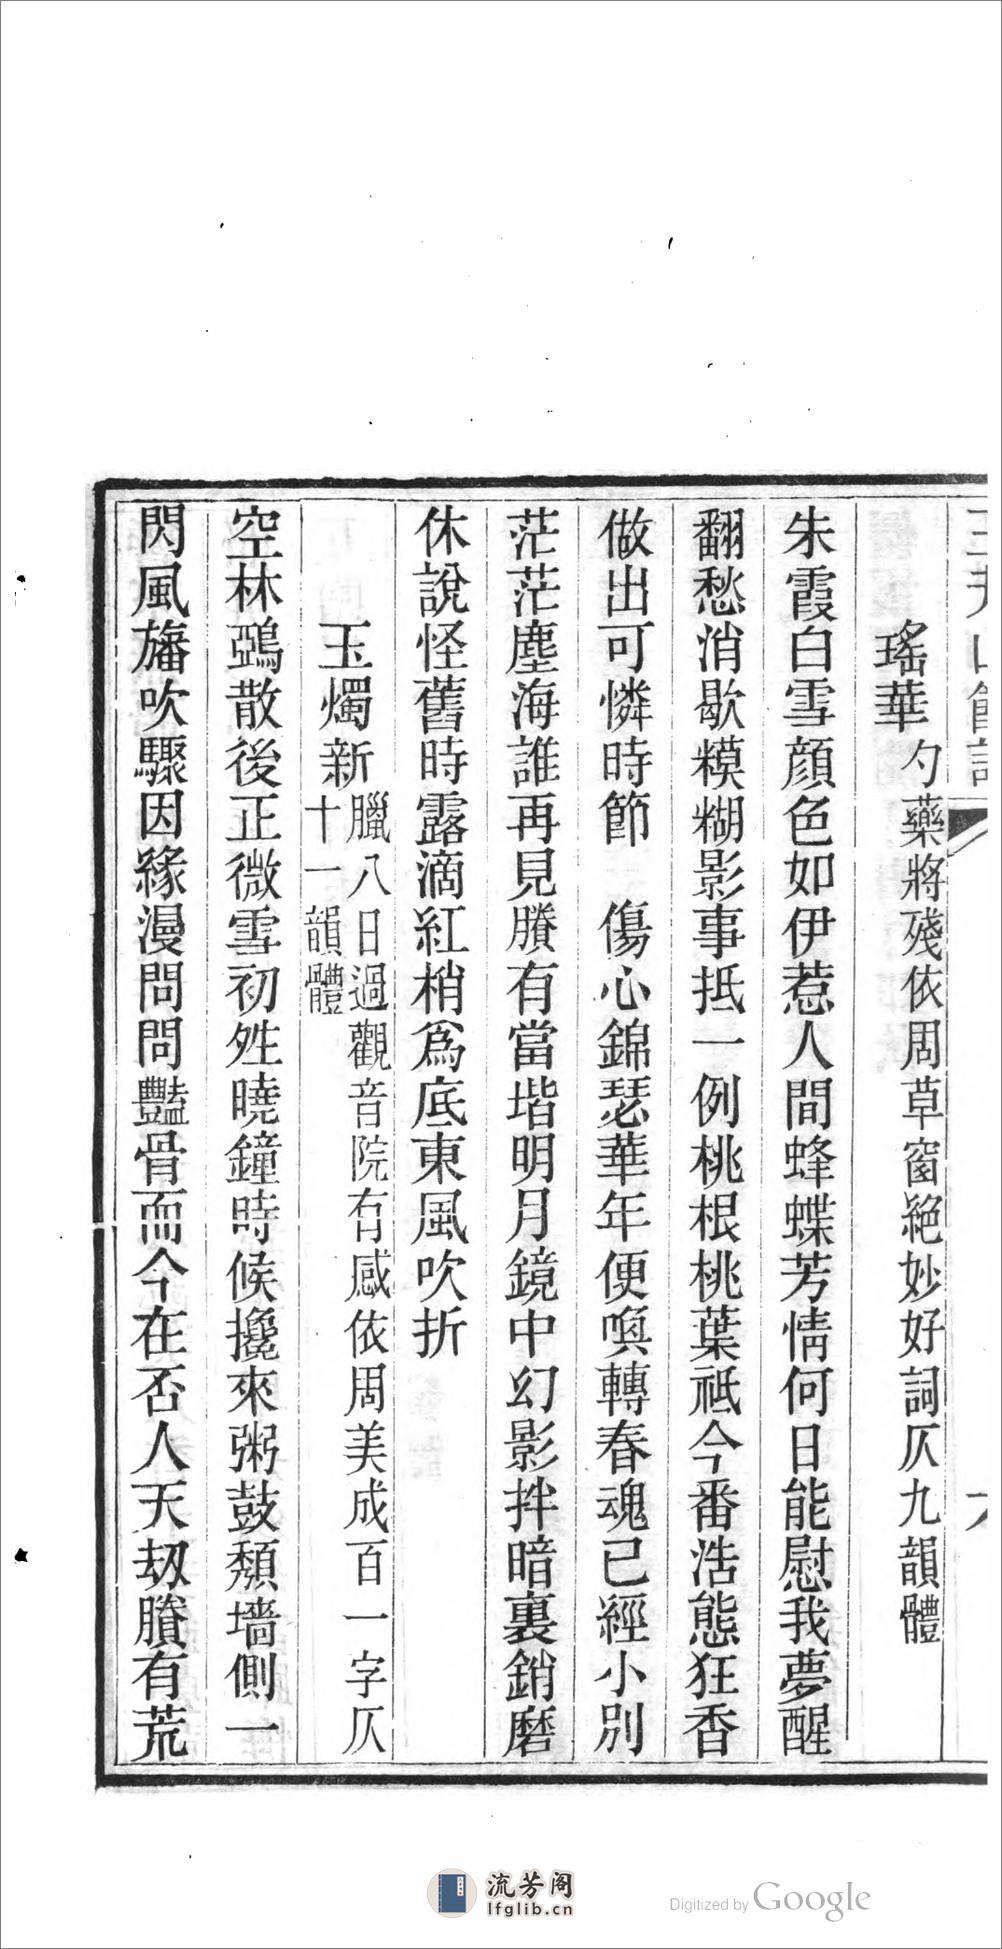 瑤華 勺藥將殘依周草窗絕妙好詞仄九韻體
朱霞白雪顏色如伊惹人間蜂蝶芳情何日能慰我夢醒
翻愁消歇糢糊影事抵一例桃根桃葉祗今番浩態狂香
做出可憐時節　傷心錦瑟華年便喚轉春魂已經小別
茫茫塵海誰再見賸有當堦明月鏡中幻影拌暗裏銷磨
休說怪舊時露滴紅梢爲底東風吹折
玉燭新 臘八日過觀音院有感依周美成百一字仄
十一韻體
空林鵶散後正微雪初姓曉鐘時候攙來粥鼓頹墻側一
閃風旛吹驟因緣漫問問豔骨而今在否人天刼賸有荒
流芳阁
lfglib.cn
Digitized by Google